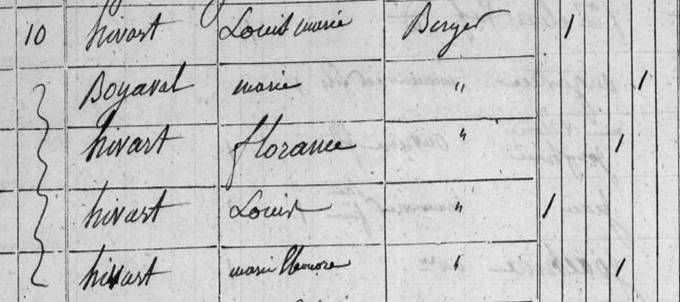 10 hivart Louis marie Berger 1
Boyaval marie " 1
hivart florance " 1
hivart Louis " 1
hivart marie Eleonore " 1